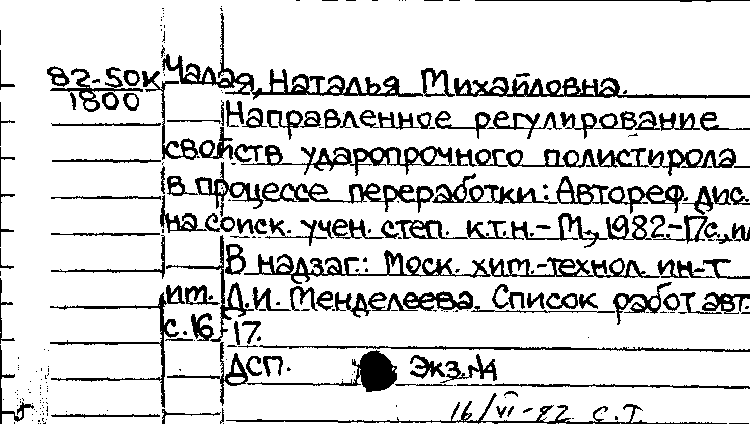 82-50к Чалая, Наталья Михайловна.
1800
Направленное регулирование
свойств ударопрочного полистирола
в процессе переработки: Автореф. дис.
на соиск. учен. степ. к.т.н. – М., 1982. – 17с., ил
В надзаг.: Моск. хим.-технол. ин-т
им. Д.И. Менделеева. Список работ авт.
с.16-17.
ДСП. Экз. №4
16/VI-82 С.Т.